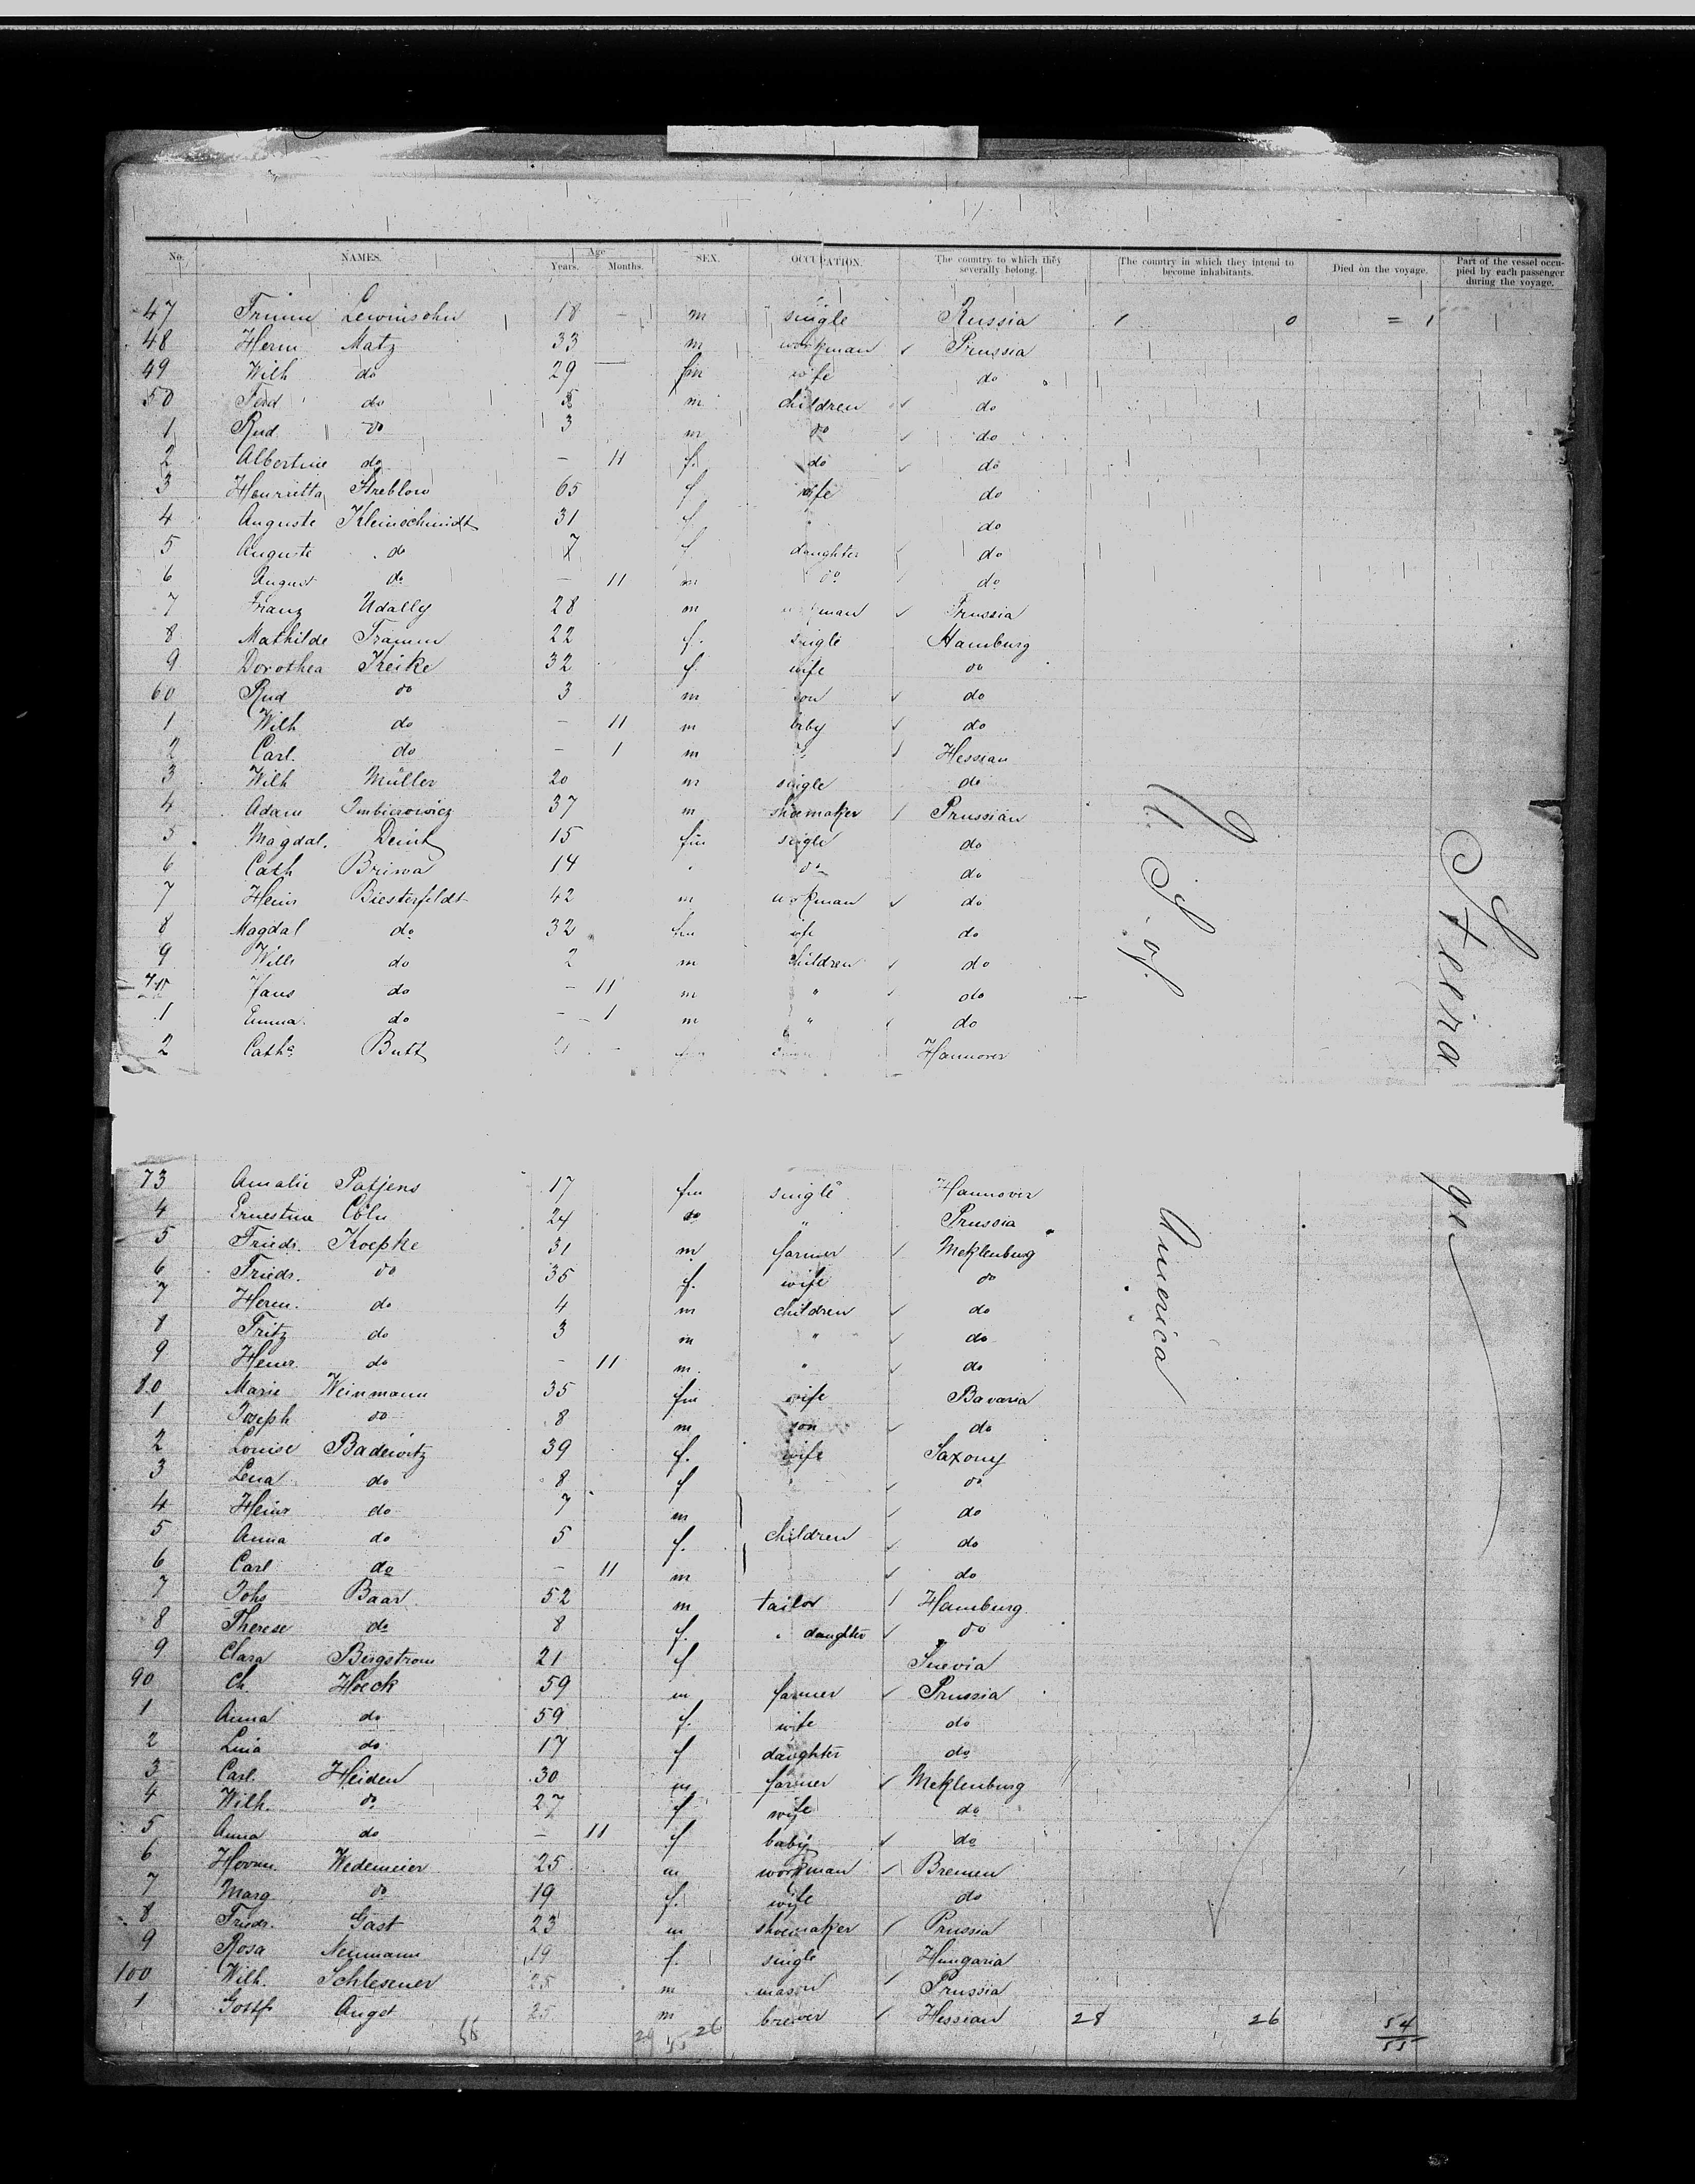 No. NAMES. Age Years. Months. SEX. OCCUPATION. The country to which they severally belong. The country in which they intend to become inhabitants. Died on the voyage. Part of the vessel occupied by each passenger during the voyage.
47 Lewinsohn 18 - m single Russia 1 0 = 1
48 Herm Matz 33 m workman Prussia
49 Wilh do 29 — fm wife do
50 Ferd do m children do
1 Rud do 3 m do do
2 Albertine do - 11 f. do do
3 Henrietta Streblow 65 f wife do
4 Auguste Kleinschmidt 31 f do
5 Auguste do 7 f daughter do
6 August do - 11 m do do
7 Franz Udally 28 m workman Prussia
8 Mathilde Framm 22 f. single Hamburg
9 Dorothea 32 f. wife do
60 Rud do 3 m son do
1 Wilh do - 11 m baby do
2 Carl. do - 1 m Hessian
3 Wilh Müller 20 m single do
4 Adam 37 m shoemaker Prussian
5 Magdal. 15 fm single do
6 Cath 14 " do do
7 Heinr Biesterfeldt 42 m workman do
8 Magdal do 32 fm wife do
9 Wilh do 2 m children do
70 do - 11 m " do
1 Emma do - 1 m " do
2 Cath. Butt Hannover
U. S. of
Steera
73 Amalie Patjens 17 fm single Hannover
4 Ernestine Cöln 24 do " Prussia
5 Friedr. Koepke 31 m farmer Meklenburg
6 Friedr. do 35 f. wife do
7 Herm. do 4 m children do
8 Fritz do 3 m " do
9 Heinr. do - 11 m. " do
80 Marie Weinmann 35 fm wife Bavaria
1 Joseph do 8 m son do
2 Louise Badewitz 39 f. wife Saxony
3 Lena do 8 f do
4 Heinr do 7 m do
5 Anna do 5 f. children do
6 Carl do - 11 m do
7 Johs Baar 52 m tailor Hamburg
8 Therese do 8 f. " daughter do
9 Clara Bergstrom 21 f
90 Ch. Hoeck 59 m farmer Prussia
1 Anna do 59 f. wife do
2 Lina do 17 f daughter do
3 Carl. Heiden 30 m farmer Meklenburg
4 Wilh. do 27 f wife do
5 Anna do - 11 f baby do
6 Wedemeier 25 m workman Bremen
7 Marg do 19 f. wife do
8 Friedr. Gast 23 m shoemaker Prussia
9 Rosa Neumann 19 f. single Hungaria
100 Wilh. Schlesener 25 m mason Prussia
1 Gottf Angst 25 m brewer Hessian 28 26 54
26 55
America
ge